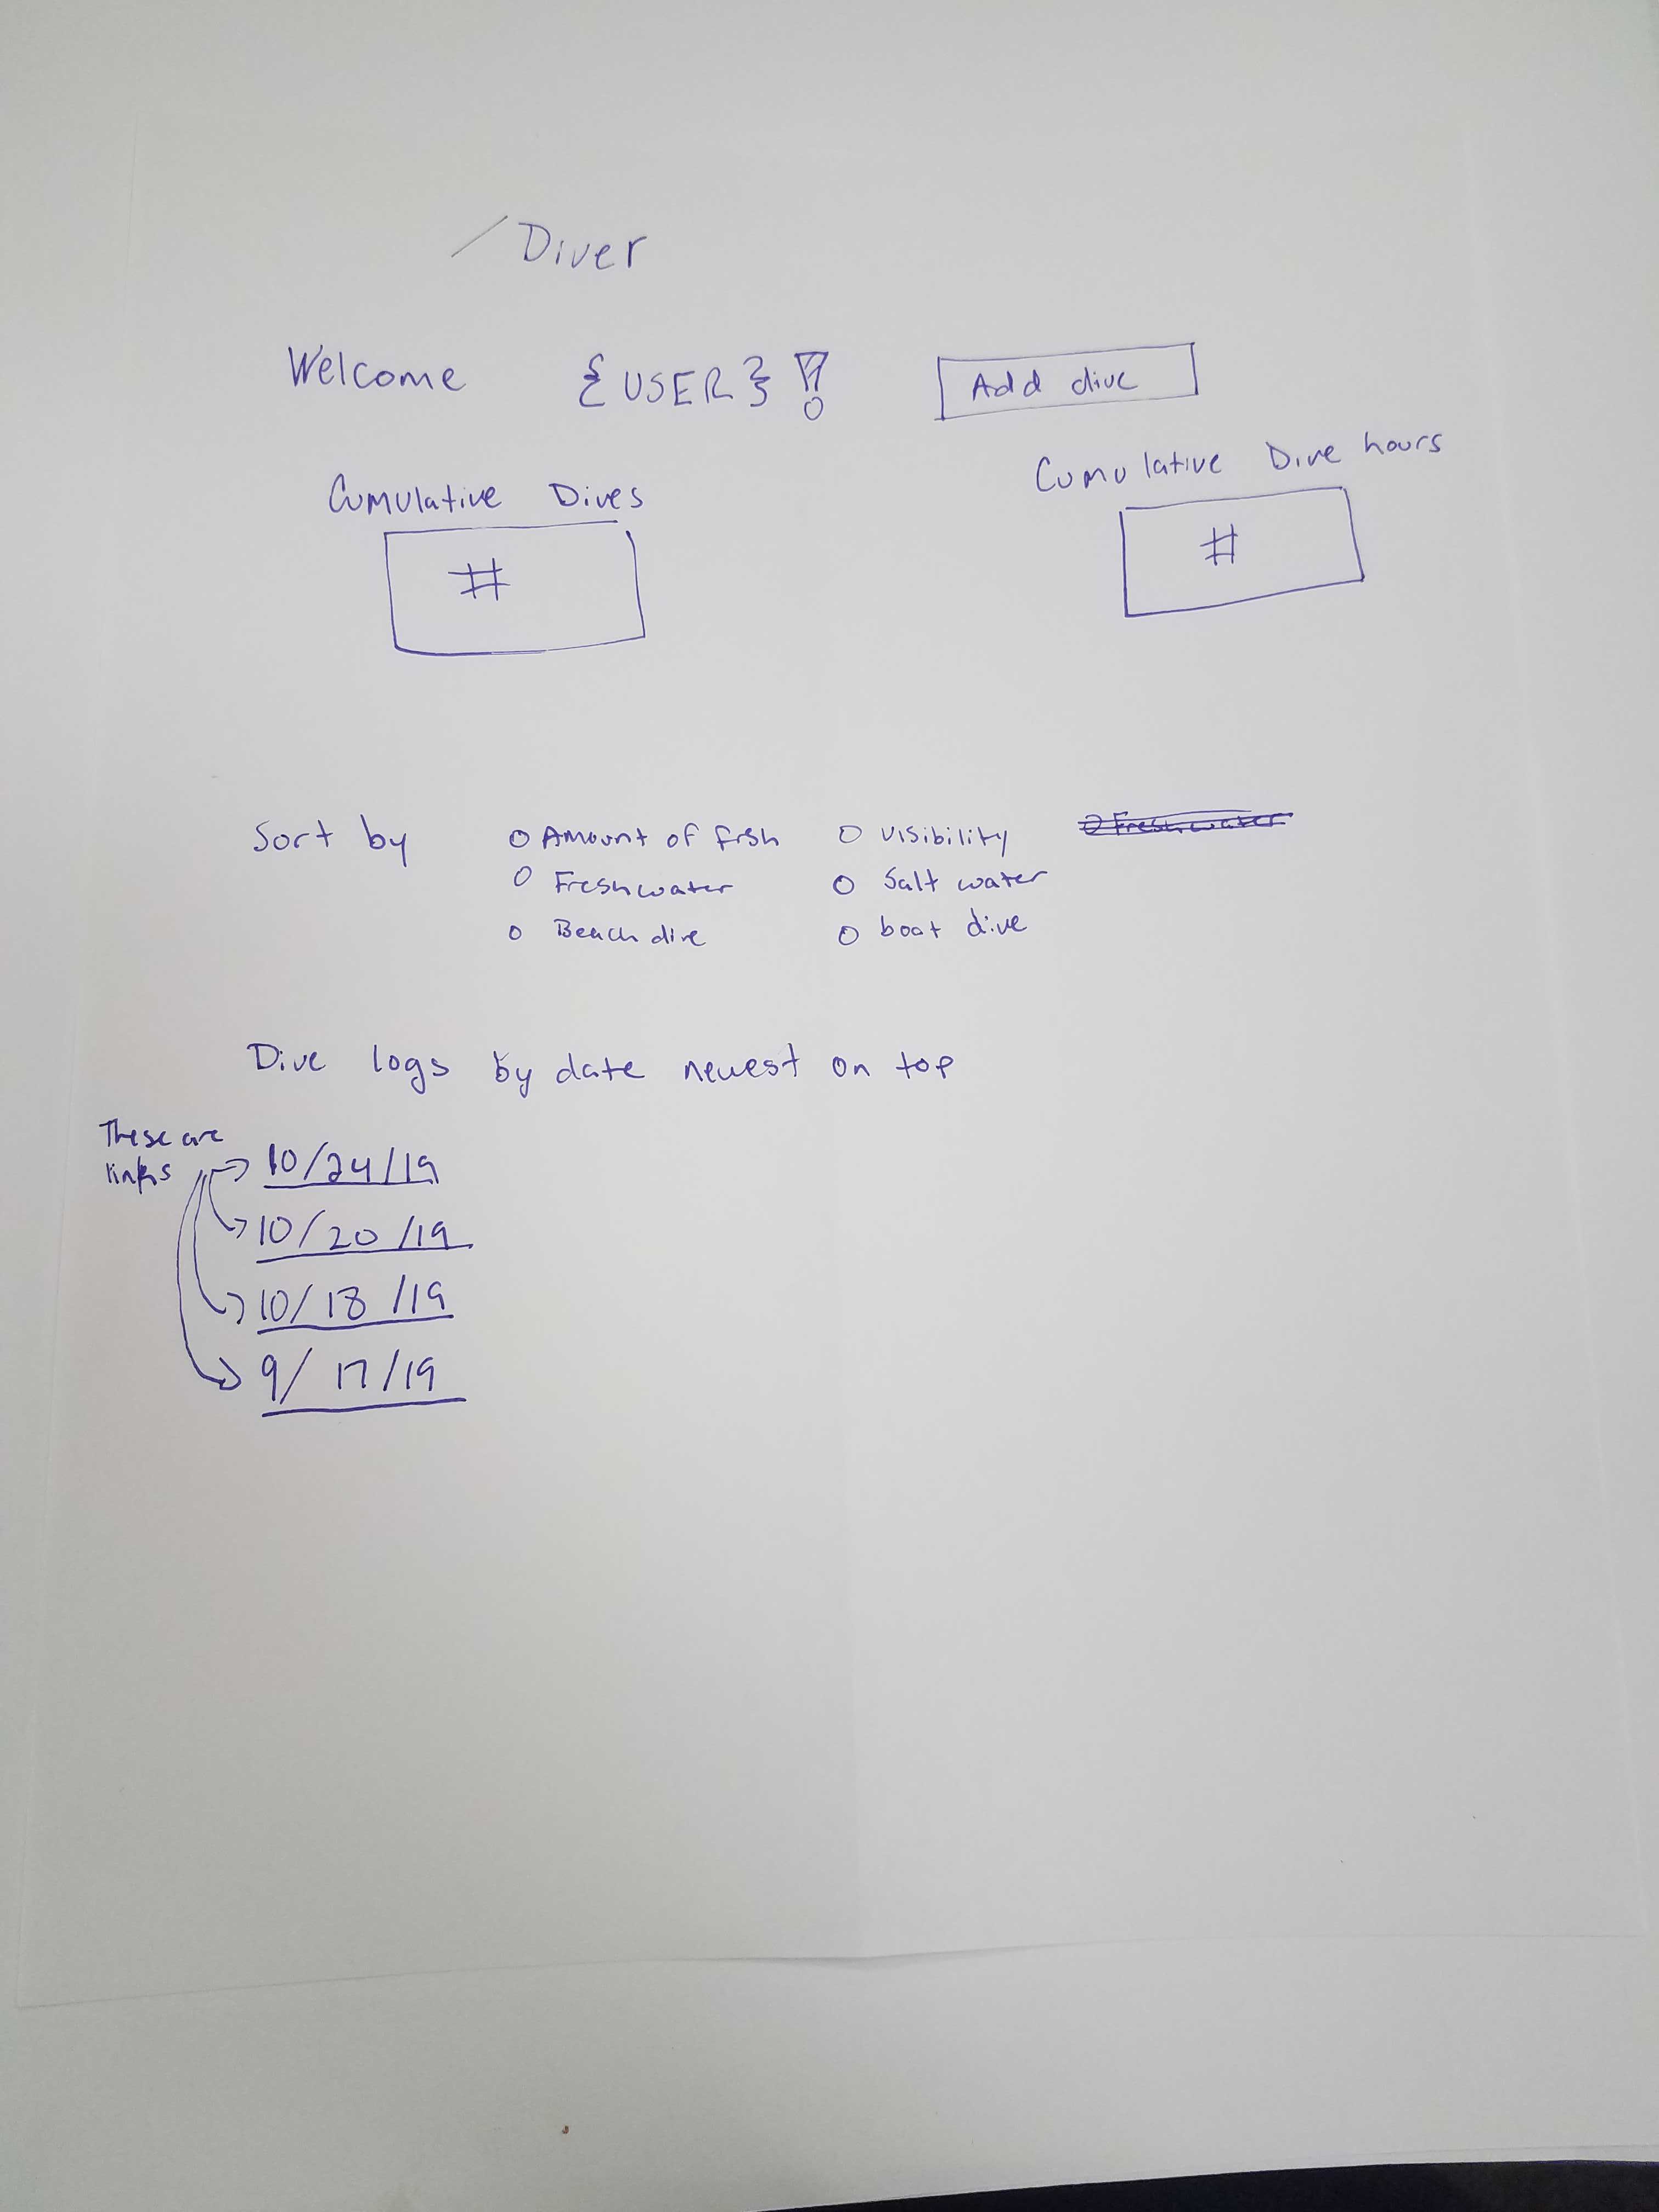 /Diver
Welcome {USER}! Add dive
Cumulative Dives Cumulative Dive hours
# #
Sort by O Amount of fish O Visibility O Freshwater
O Freshwater O Salt water
O Beach dive O boat dive
Dive logs by date newest on top
These are
links
10/24/19
10/20/19
10/18/19
9/17/19